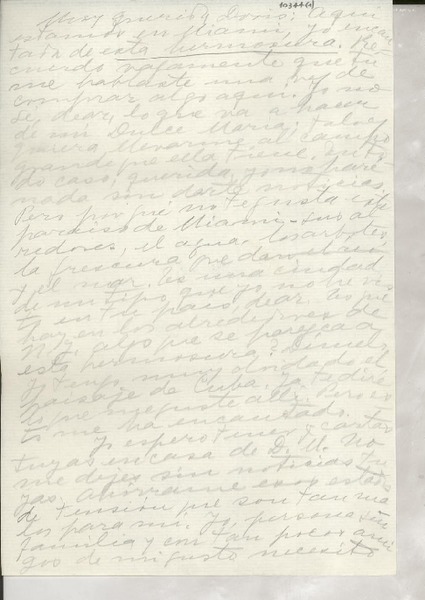 Muy querida Doris: Aquí
estamos en Miami, yo encan
tada de esta hermosura. Re
cuerdo vagamente que tú
me hablaste una vez de
comprar algo aquí. Yo no
sé, dear, lo que va a hacer
de mí Dulce María; tal vez
quiera llevarme al campo
grande que ella tiene. En to
do caso, querida, yo no paré
nada sin darte noticias.
Pero por qué no te gusta este
paraíso de Miami - sus al
rededores, el agua, los árboles,
la frescura que dan
y el mar. Es una ciudad
de un tipo que yo no he vis
to en tu país, dear. Es que
hay en los alrededores de
N.Y. algo que se parezca a
esta hermosura? Dímelo.
Yo tengo muy olvidado el
paisaje de Cuba. Ya te diré
lo que me guste allí. Pero es
to me ha encantado.
Yo espero tener cartas
tuyas en casa de D. M. No
me dejes sin noticias tu
yas. Ahórrame esos estados
de tensión que son tan ma
los para mí. Yo, persona sin
familia y con tan pocos ami
gos de mi gusto necesito